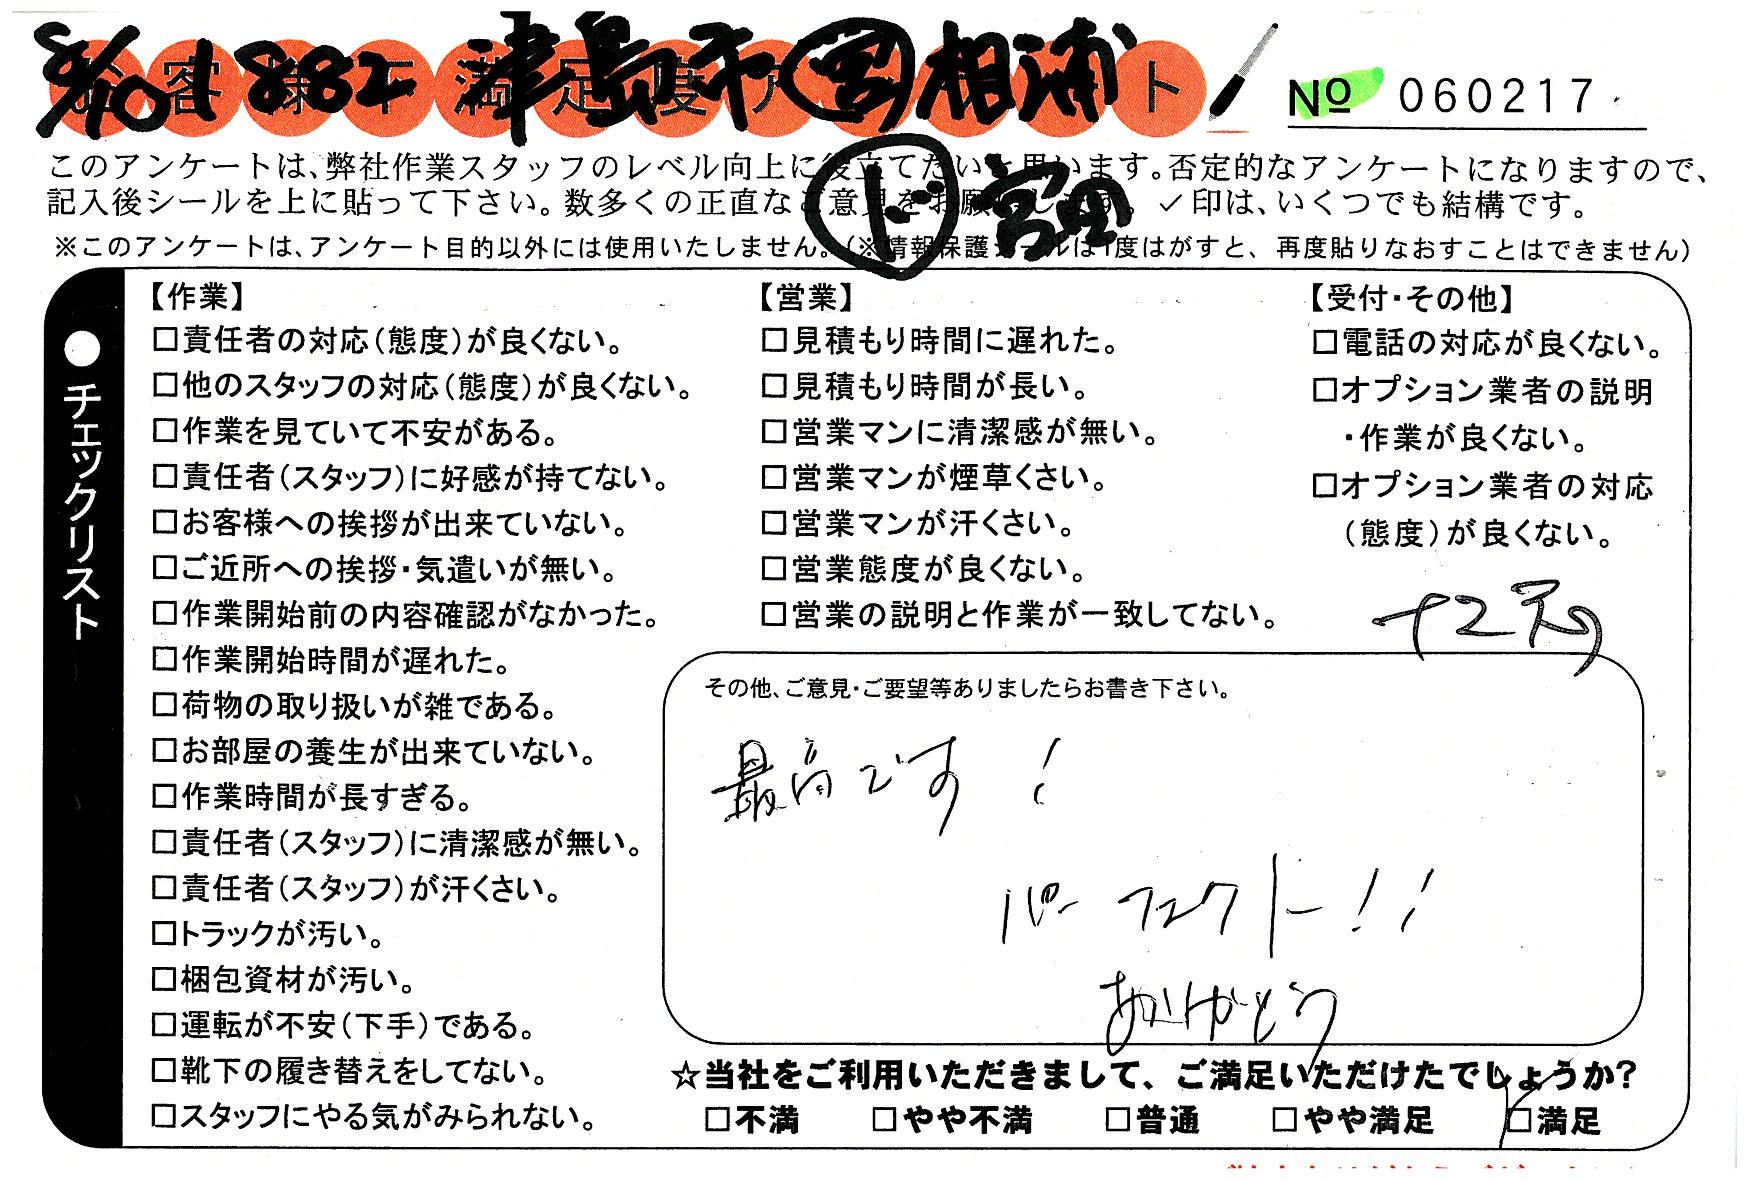 8/10 1882 津島市 営 相浦
お客様不満足度アンケート
№ 060217
ド 宮田
このアンケートは、弊社作業スタッフのレベル向上に役立てたいと思います。否定的なアンケートになりますので、
記入後シールを上に貼って下さい。数多くの正直なご意見をお願いします。✓印は、いくつでも結構です。
※このアンケートは、アンケート目的以外には使用いたしません。(※情報保護シールは1度はがすと、再度貼りなおすことはできません)
●チェックリスト
【作業】
□責任者の対応(態度)が良くない。
□他のスタッフの対応(態度)が良くない。
□作業を見ていて不安がある。
□責任者(スタッフ)に好感が持てない。
□お客様への挨拶が出来ていない。
□ご近所への挨拶・気遣いが無い。
□作業開始前の内容確認がなかった。
□作業開始時間が遅れた。
□荷物の取り扱いが雑である。
□お部屋の養生が出来ていない。
□作業時間が長すぎる。
□責任者(スタッフ)に清潔感が無い。
□責任者(スタッフ)が汗くさい。
□トラックが汚い。
□梱包資材が汚い。
□運転が不安(下手)である。
□靴下の履き替えをしてない。
□スタッフにやる気がみられない。
【営業】
□見積もり時間に遅れた。
□見積もり時間が長い。
□営業マンに清潔感が無い。
□営業マンが煙草くさい。
□営業マンが汗くさい。
□営業態度が良くない。
□営業の説明と作業が一致してない。
【受付・その他】
□電話の対応が良くない。
□オプション業者の説明
・作業が良くない。
□オプション業者の対応
(態度)が良くない。
その他、ご意見・ご要望等ありましたらお書き下さい。
最高です!
パーフェクト!!
ありがとう
☆当社をご利用いただきまして、ご満足いただけたでしょうか?
□不満 □やや不満 □普通 □やや満足 □満足